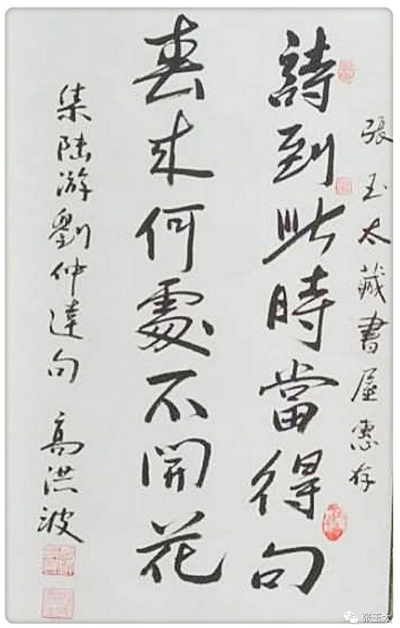 張玉太藏書屋惠存
詩到此時當得句
春來何處不開花
集陸游劉仲達句 高洪波
张玉太